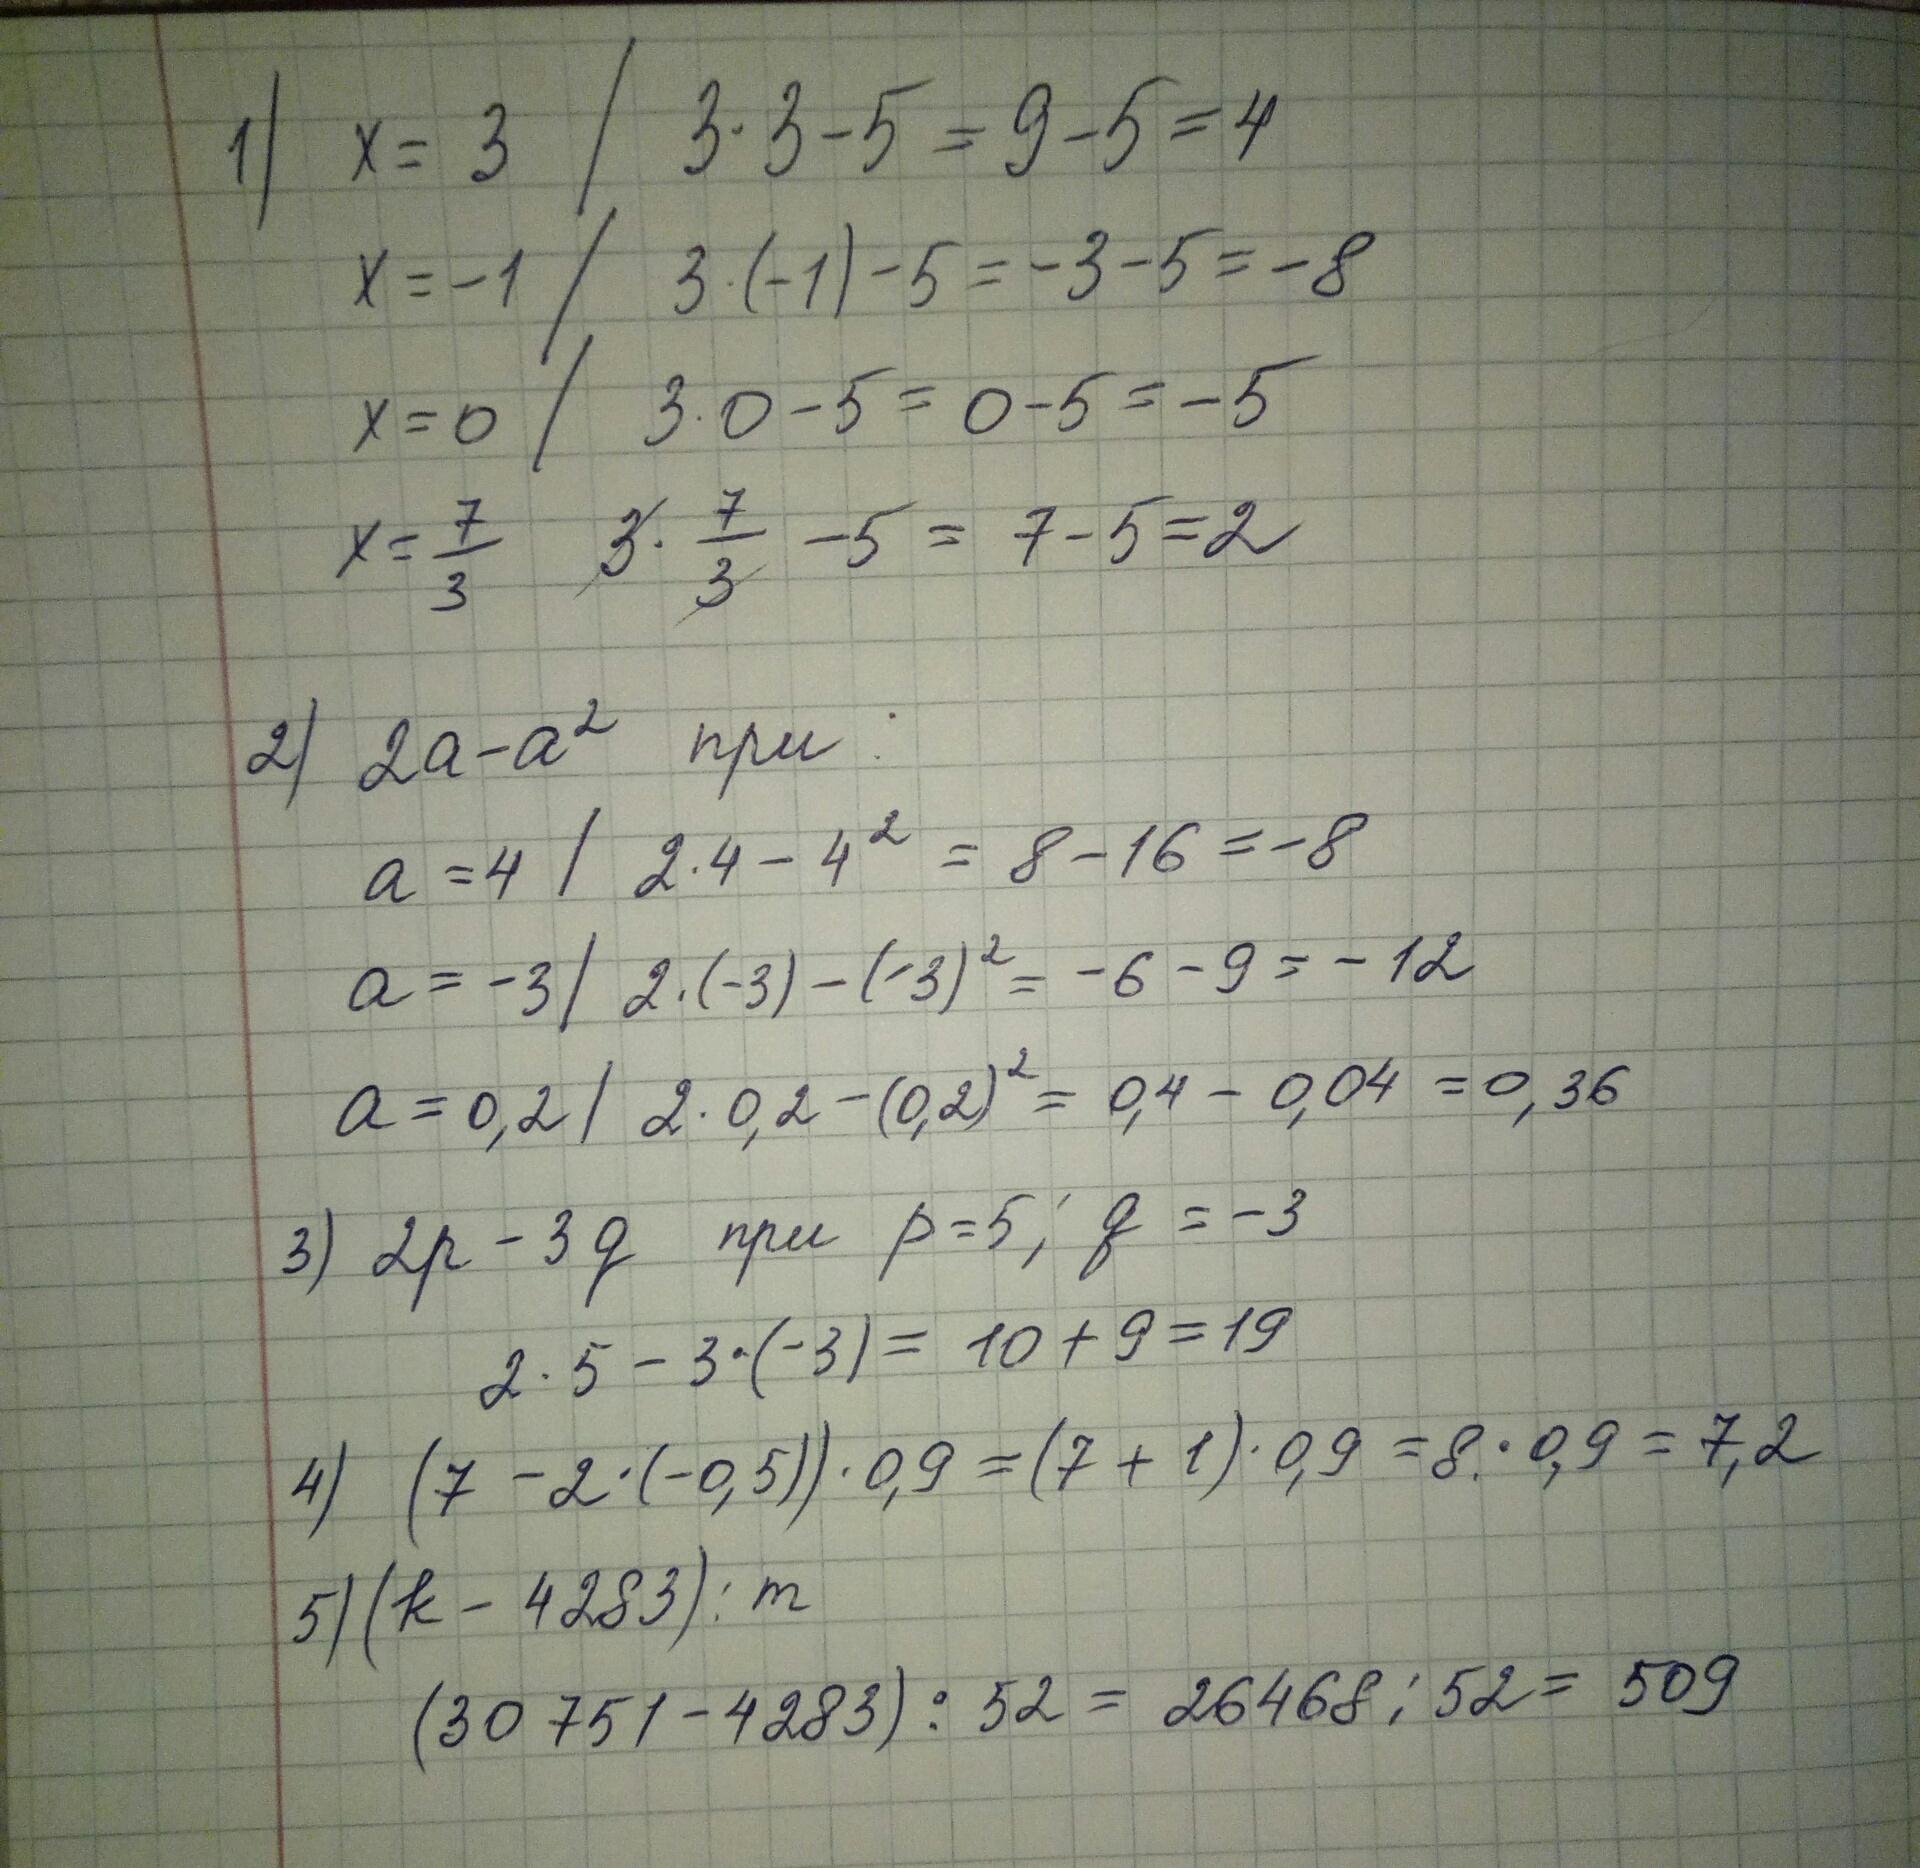 1) x = 3 / 3·3-5 = 9-5 = 4
x = -1 / 3·(-1)-5 = -3-5 = -8
x = 0 / 3·0-5 = 0-5 = -5
x = 7/3 3·7/3 -5 = 7-5 = 2
2) 2a-a² при :
a = 4 / 2·4-4² = 8-16 = -8
a = -3 / 2·(-3)-(-3)² = -6-9 = -12
a = 0,2 / 2·0,2-(0,2)² = 0,4-0,04 = 0,36
3) 2p-3q при p=5; q = -3
2·5-3·(-3) = 10+9 = 19
4) (7-2·(-0,5))·0,9 = (7+1)·0,9 = 8·0,9 = 7,2
5) (k-4283):m
(30751-4283):52 = 26468:52 = 509